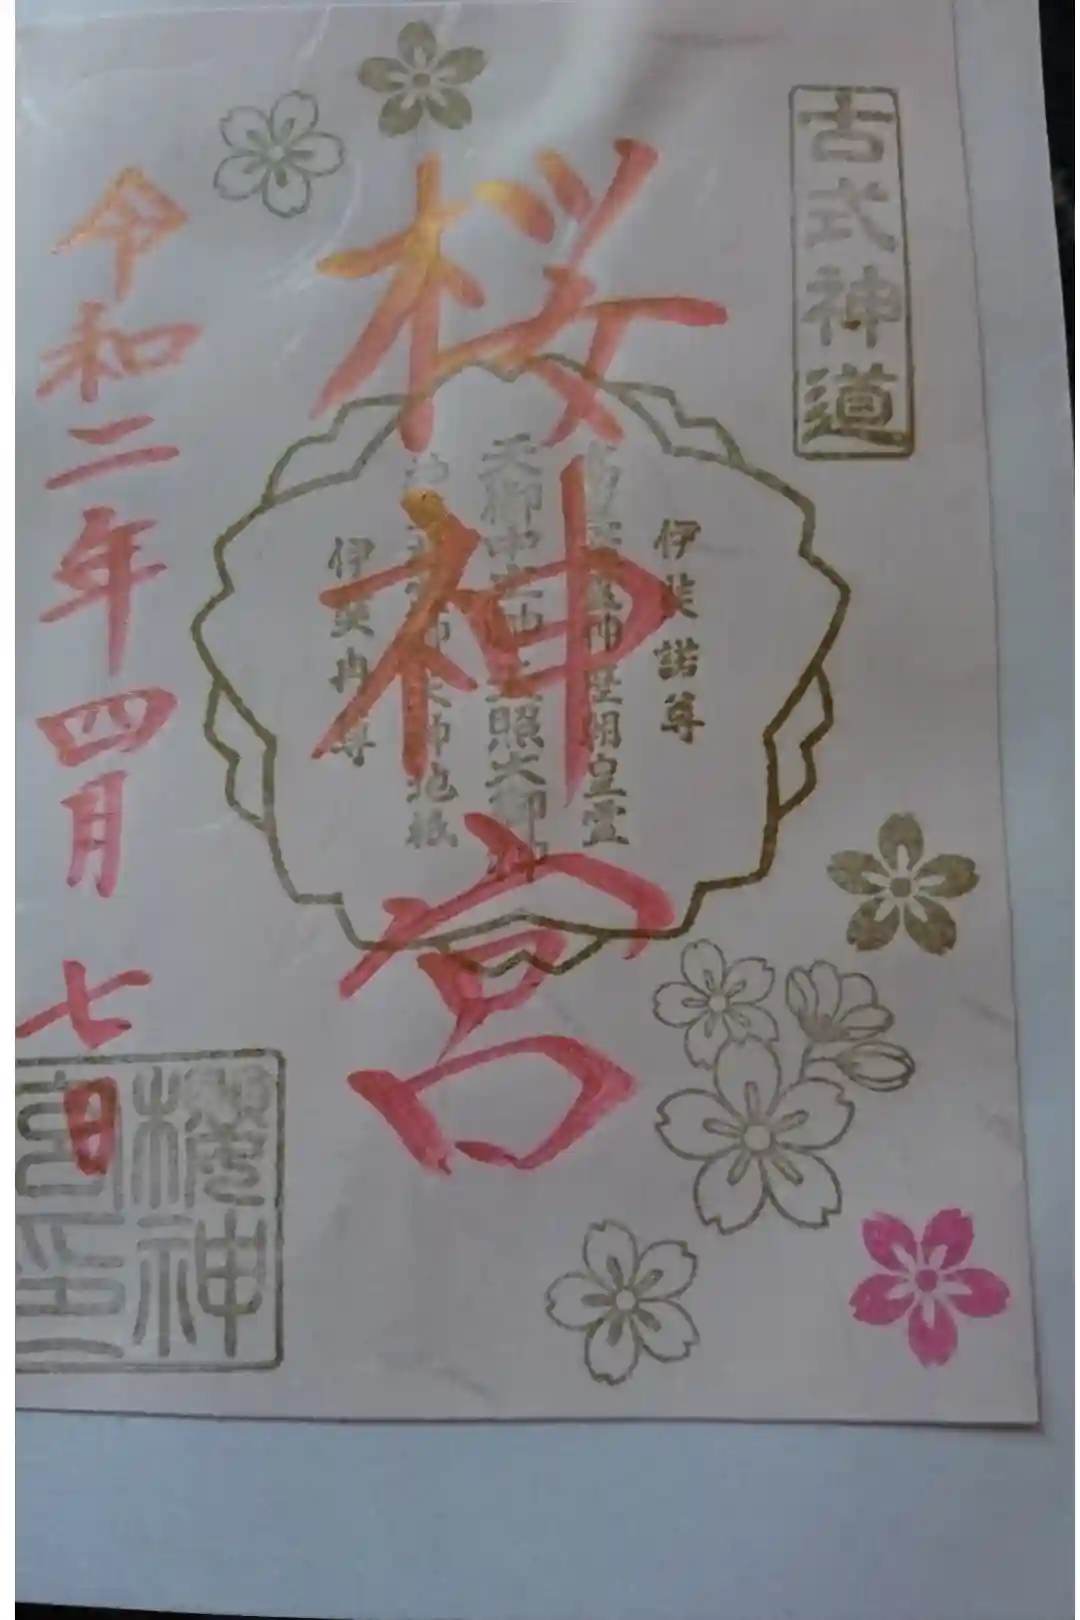 古式神道
桜神宮
伊弉諾尊
天御中主神 天照大御神
伊弉冉尊
令和二年四月七日
櫻神宮印